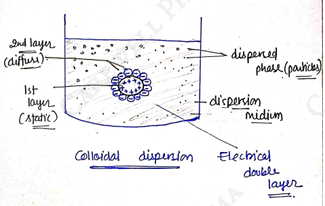 2nd layer
(diffuse)
1st
layer
(static)
dispersed
phase (particles)
dispersion
midium
Colloidal dispersion
Electrical
double
layer